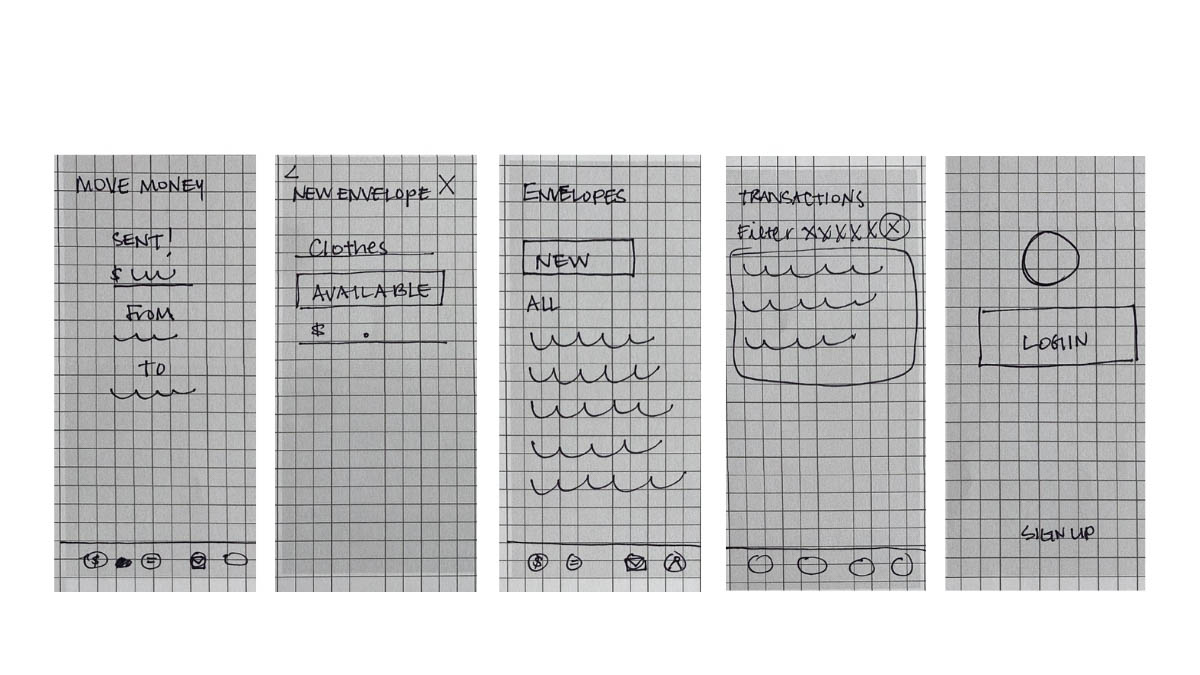 MOVE MONEY
SENT!
$
From
TO
<
NEW ENVELOPE X
Clothes
AVAILABLE
$ .
ENVELOPES
NEW
ALL
TRANSACTIONS
Filter XXXXX X
LOGIN
SIGN UP
$ =
$ =